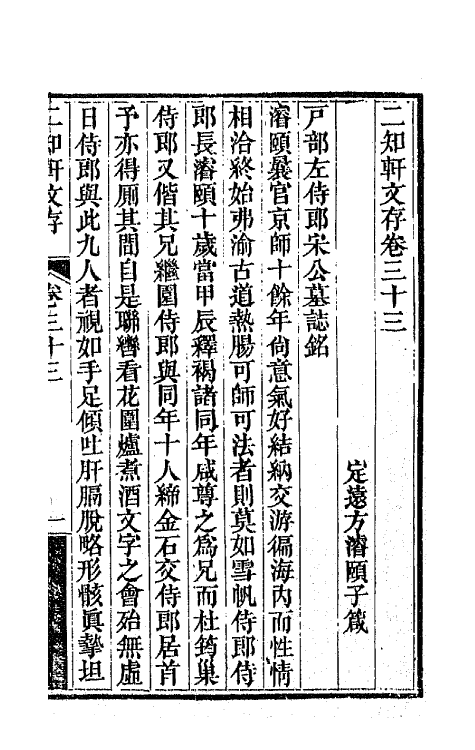 二知軒文存卷三十三
定遠方濬頤子箴
戸部左侍郎宋公墓誌銘
濬頤曩官京師十餘年尙意氣好結納交游徧海內而性情
相洽終始弗渝古道熱腸可師可法者則莫如雪帆侍郎侍
郎長濬頤十歲當甲辰釋褐諸同年咸尊之爲兄而杜筠巢
侍郎又偕其兄繼園侍郎與同年十人締金石交侍郎居首
予亦得厠其間自是聯轡看花圍爐煮酒文字之會殆無虛
日侍郎與此九人者視如手足傾吐肝膈脫略形骸眞摯坦
二知軒文存
卷三十三
一